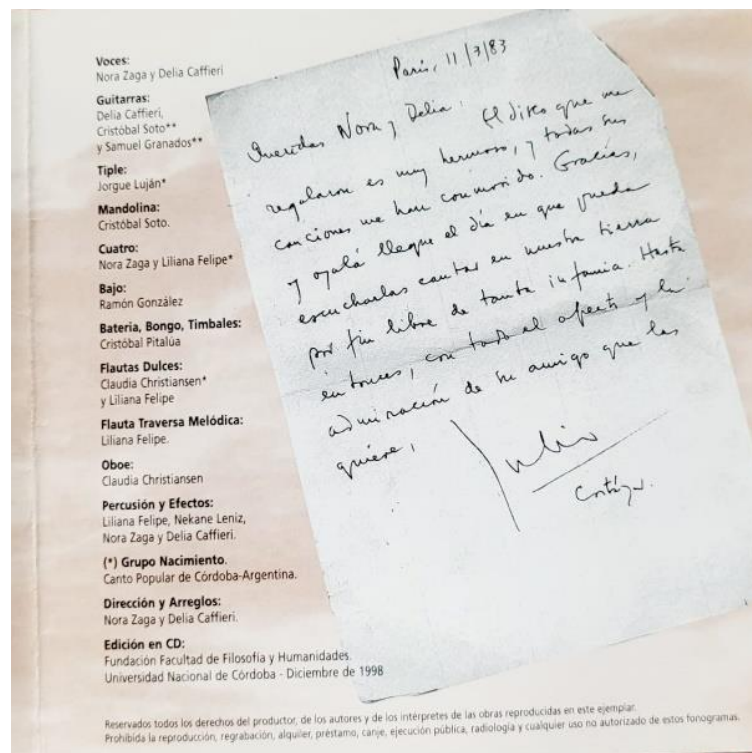 Voces:
Nora Zaga y Delia Caffieri
Guitarras:
Delia Caffieri,
Cristóbal Soto**
y Samuel Granados**
Tiple:
Jorgue Luján*
Mandolina:
Cristóbal Soto.
Cuatro:
Nora Zaga y Liliana Felipe*
Bajo:
Ramón González
Bateria, Bongo, Timbales:
Cristóbal Pitalúa
Flautas Dulces:
Claudia Christiansen*
y Liliana Felipe
Flauta Traversa Melódica:
Liliana Felipe.
Oboe:
Claudia Christiansen
Percusión y Efectos:
Liliana Felipe, Nekane Leniz,
Nora Zaga y Delia Caffieri.
(*) Grupo Nacimiento.
Canto Popular de Córdoba-Argentina.
Dirección y Arreglos:
Nora Zaga y Delia Caffieri.
Edición en CD:
Fundación Facultad de Filosofía y Humanidades.
Universidad Nacional de Córdoba - Diciembre de 1998
París, 11/3/83
Queridas Nora y Delia:
El disco que me
regalaron es muy hermoso, y todas sus
canciones me han conmovido. Gracias,
y ojalá llegue el día en que pueda
escucharlas cantar en nuestra tierra
por fin libre de tanta infamia. Hasta
entonces, con todo el afecto y la
admiración de su amigo que las
quiere,
Julio
Cortázar.
Reservados todos los derechos del productor, de los autores y de los intérpretes de las obras reproducidas en este ejemplar.
Prohibida la reproducción, regrabación, alquiler, préstamo, canje, ejecución pública, radiología y cualquier uso no autorizado de estos fonogramas.